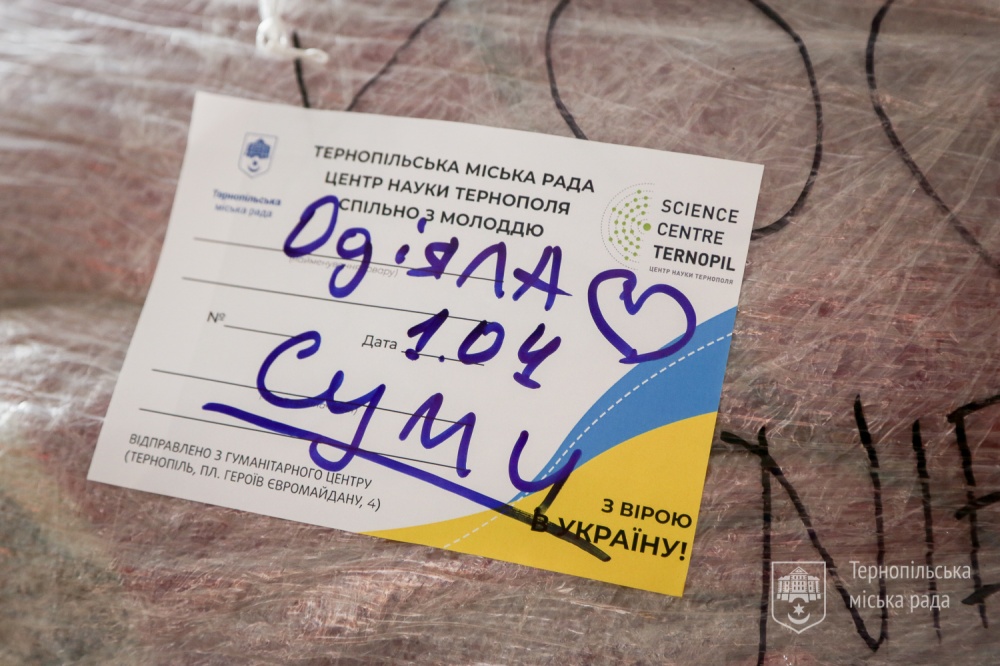 ТЕРНОПІЛЬСЬКА МІСЬКА РАДА
ЦЕНТР НАУКИ ТЕРНОПОЛЯ
СПІЛЬНО З МОЛОДДЮ
Тернопільська
міська рада
SCIENCE
CENTRE
TERNOPIL
ЦЕНТР НАУКИ ТЕРНОПОЛЯ
Одіяла
№ Дата 1.04
Суми
ВІДПРАВЛЕНО З ГУМАНІТАРНОГО ЦЕНТРУ
(ТЕРНОПІЛЬ, ПЛ. ГЕРОЇВ ЄВРОМАЙДАНУ, 4)
З ВІРОЮ
В УКРАЇНУ!
Тернопільська
міська рада